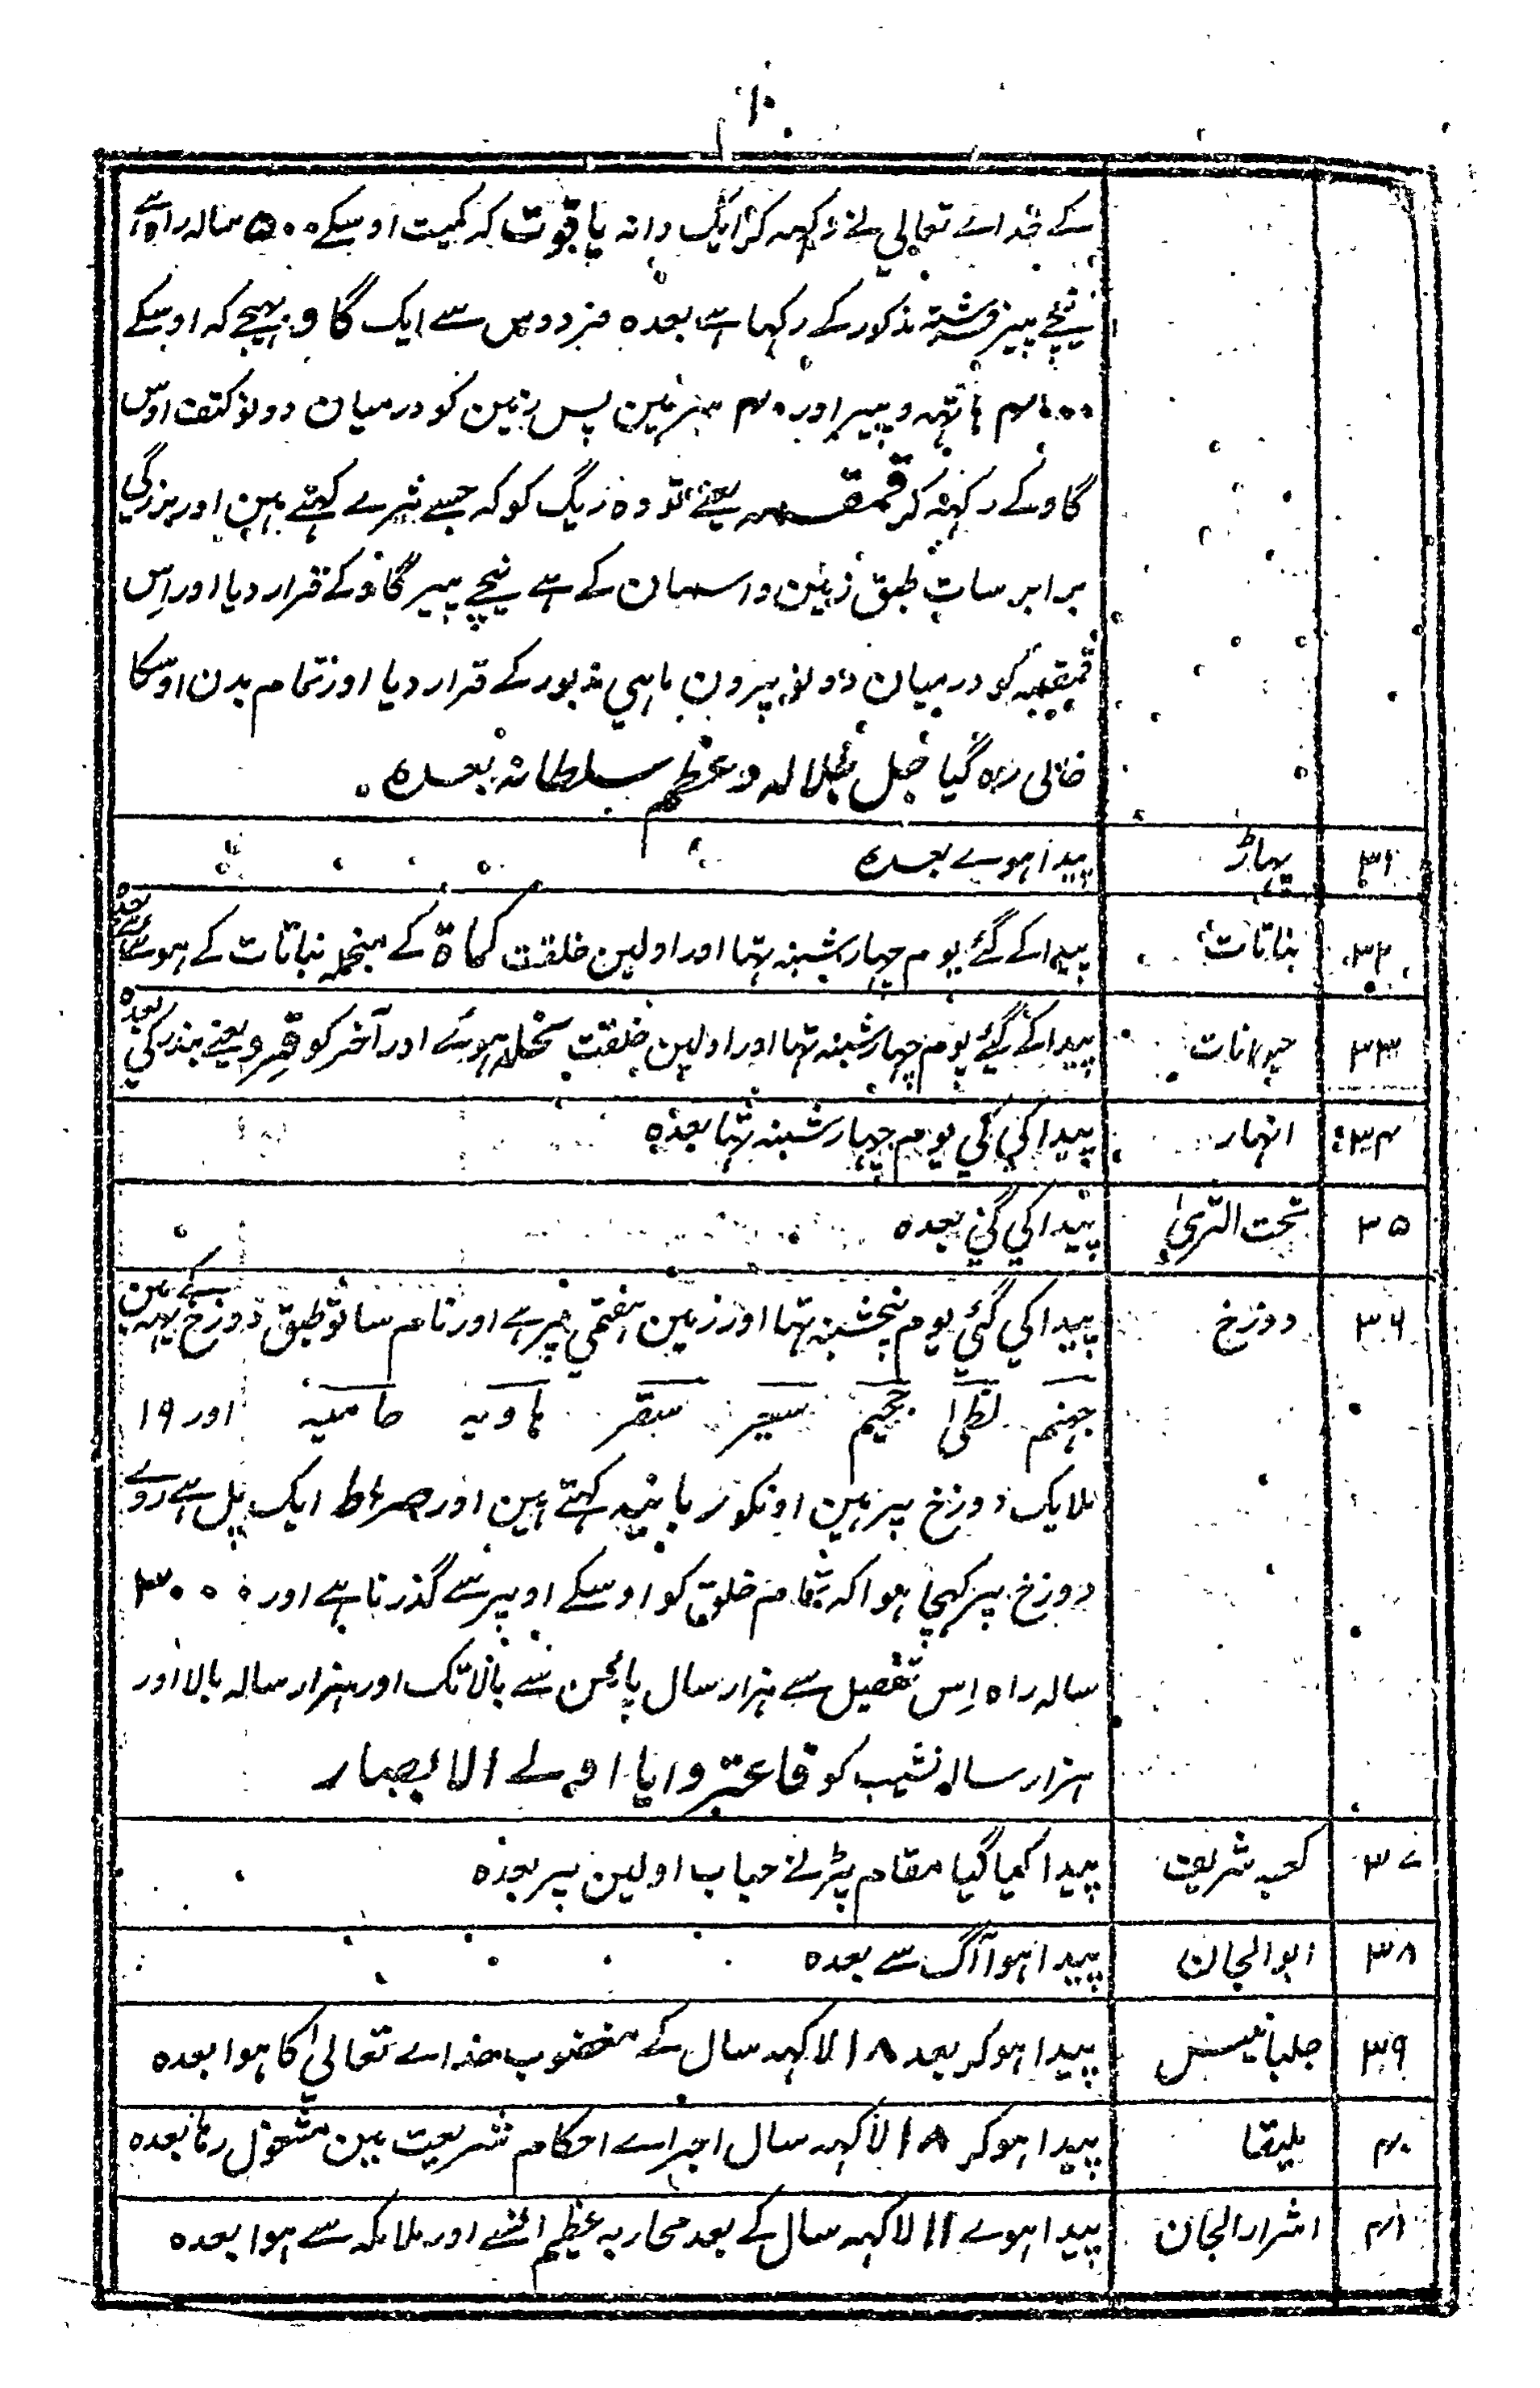 ۱۰
کے خداے تعالی نے رکہہ کر ایک دانہ یاقوت کہ کمیت اوسکے ۵۰۰ سالہ راہ ہے
نیچے پیر فرشتہ مذکور کے رکہا ہے بعدہ فردوس سے ایک گاو بہیجے کہ اوسکے
۴۰۰۰ ہاتہہ و پیر اور ۴۰ ہزار ہین پس زمین کو درمیان دونو کتف اوس
گاو کے رکہہ کر قمقمہ یعنے تودہ ریگ کو کہ جسے ثرے کہتے ہین اور بزرگی
برابر سات طبق زمین و اسمان کے ہے نیچے پیر گاو کے قرار دیا اور اِس
قمقمہ کو درمیان دونو پرون ماہی مذبور کے قرار دیا اور تمام بدن اوسکا
خالی رہ گیا جل جلالہ و عظم سلطانہ بعدہ
۳۱ پہاڑ پیدا ہوے بعدہ
۳۲ نباتات پیدا کے گئے یوم چہار شنبہ تہا اور اولین خلقت کماۃ کے منجملہ نباتات کے ہوئے بعدہ
۳۳ حیوانات پیدا کے گئے یوم چہار شنبہ تہا اور اولین خلقت نخلہ ہوئے اور آخر کو قرد یعنے بندر کی بعدہ
۳۴ انہار پیدا کی گی یوم چہار شنبہ تہا بعدہ
۳۵ تحت الثریٰ پیدا کی گئ بعدہ
۳۶ دوزخ پیدا کی گئی یوم پنجشنبہ تہا اور زمین ہفتمی پر ہے اور نام ساتو طبق دوزخ کے یہہ ہین
جہنم لظیٰ جحیم سعیر سقر ہاویہ حامیہ اور ۱۹
ملایک دوزخ پر ہین اونکو زبانیہ کہتے ہین اور صراط ایک پل ہے روے
دوزخ پر کہچا ہوا کہ تمام خلق کو اوسکے اوپر سے گذرنا ہے اور ۳۰۰۰
سالہ راہ اِس تفصیل سے ہزار سال پائین سے بالا تک اور ہزار سالہ بالا اور
ہزار سالہ نشیب کو فاعتبروا یا اولے الابصار
۳۷ کعبہ شریف پیدا کیا گیا مقام پڑنے حباب اولین پر بعدہ
۳۸ ابو الجان پیدا ہوا آگ سے بعدہ
۳۹ جلبانیس پیدا ہوکر بعد ۱۸ لاکہہ سال کے مغضوب خداے تعالیٰ کا ہوا بعدہ
۴۰ بلیقا پیدا ہوکر ۱۸ لاکہہ سال اجراے احکام شریعت مین مشغول رہا بعدہ
۴۱ اشرار الجان پیدا ہوے ۱۱ لاکہہ سال کے بعد محاربہ عظیم انسے اور ملایکہ سے ہوا بعدہ